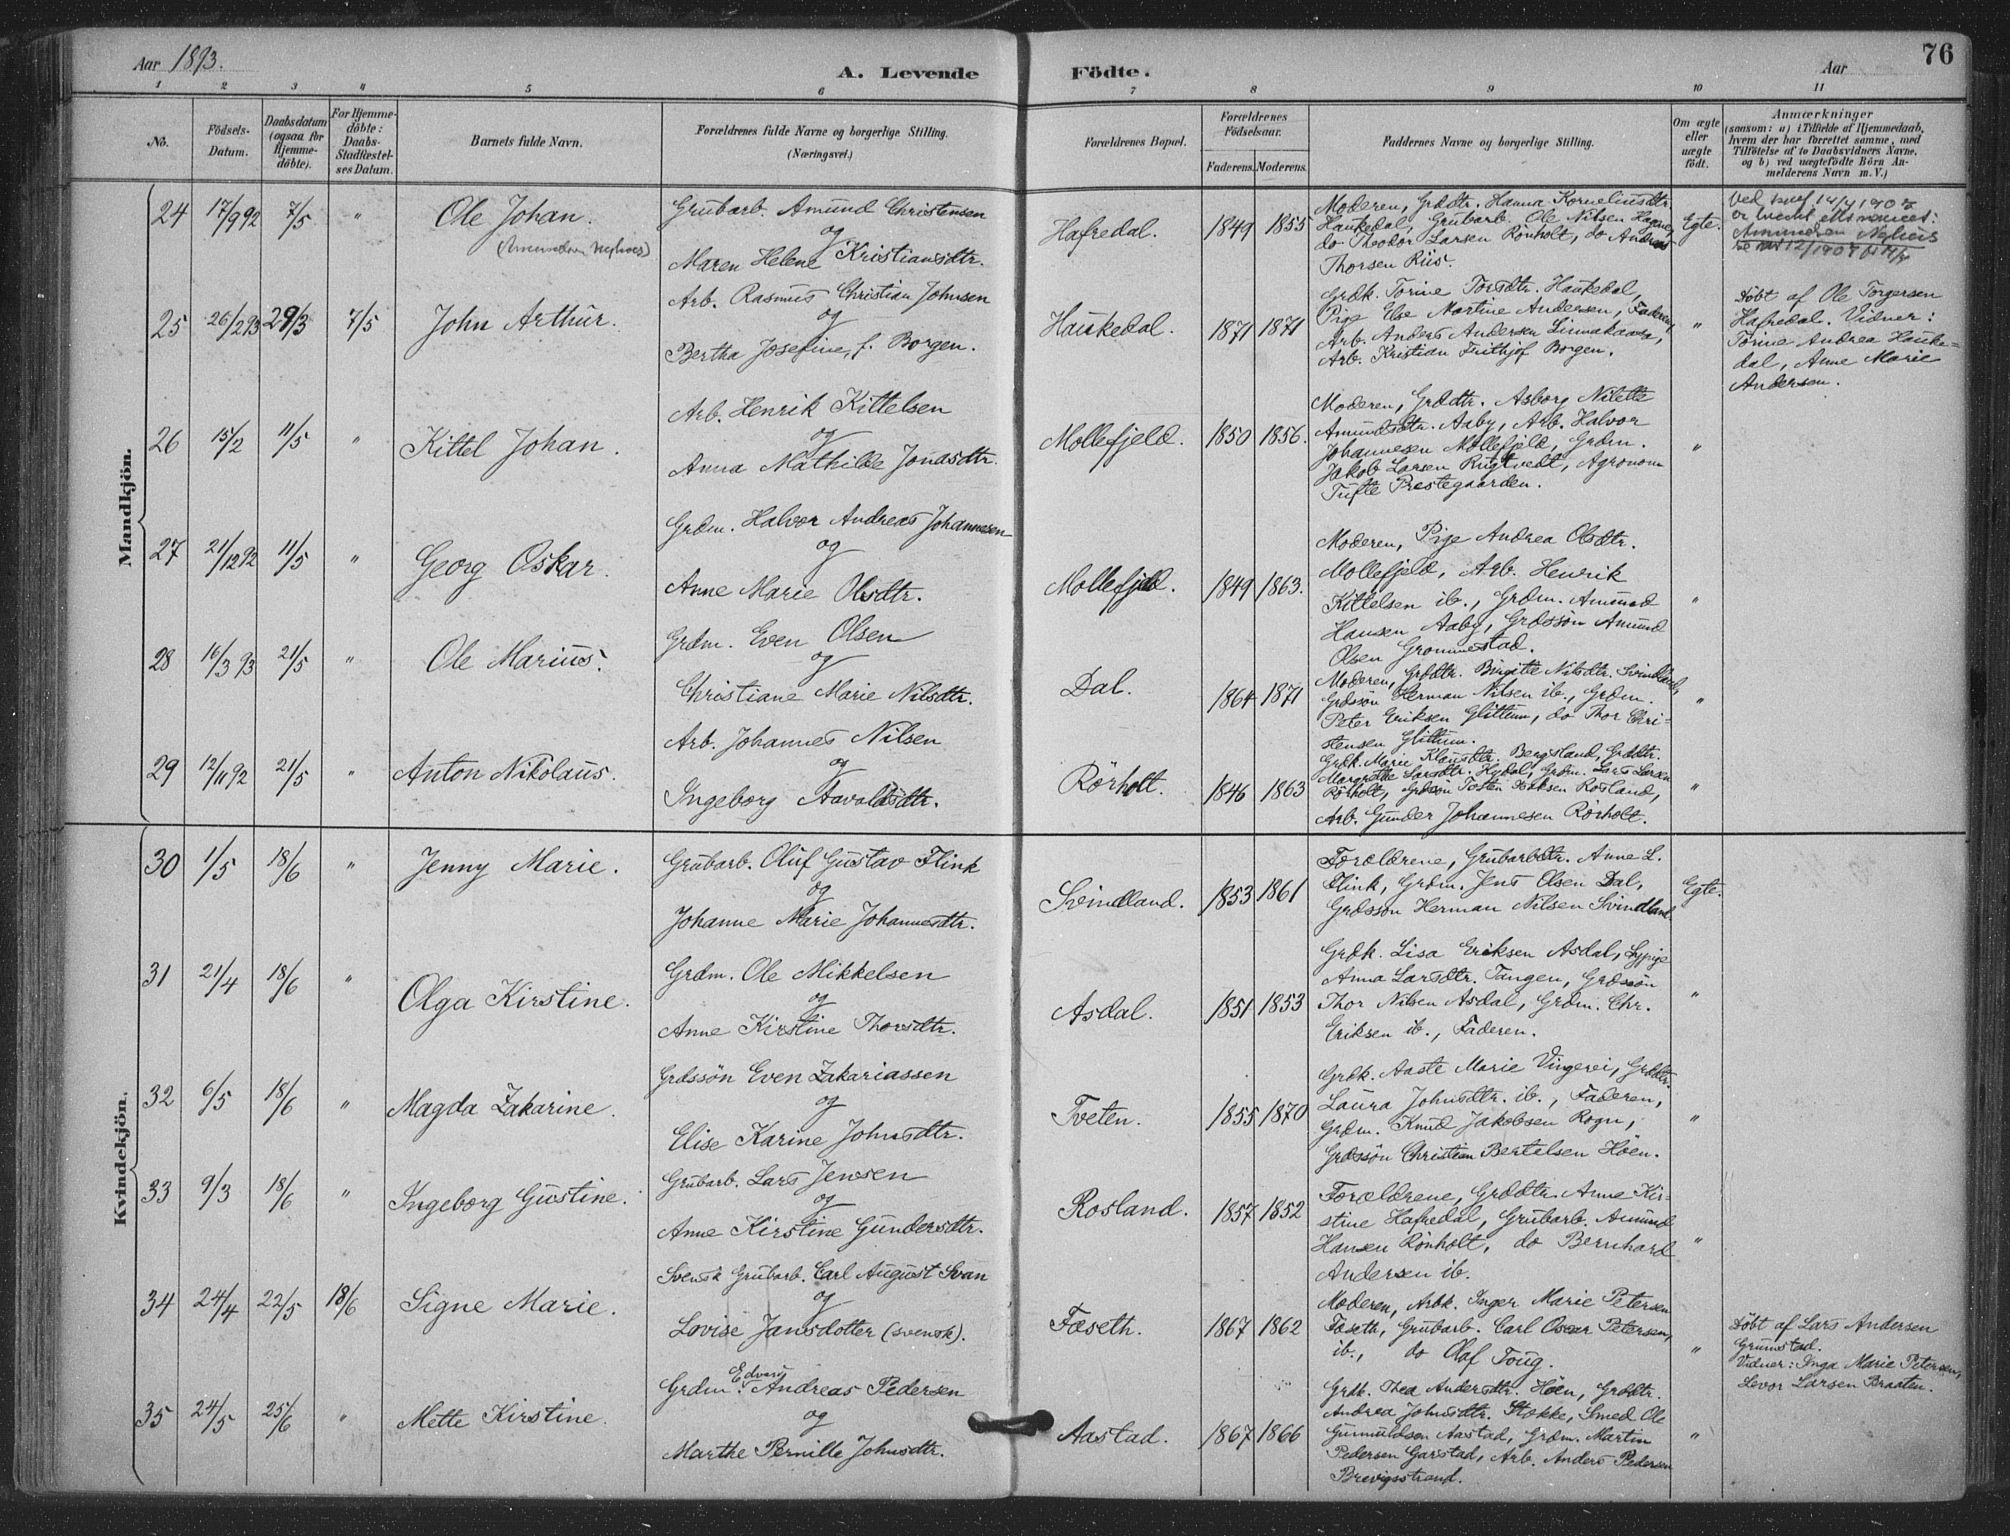 Aar 1893.
A. Levende
Födte.
Aar
76
1 2 3 4 5 6 7 8 9 10 11
No.
Födsels-
Datum.
Daabsdatum
(ogsaa for
Hjemme-
döbte).
For Hjemme-
döbte:
Daabs-
Stadfæstel-
ses Datum.
Barnets fulde Navn.
Forældrenes fulde Navne og borgerlige Stilling.
(Næringsvei.)
Forældrenes Bopæl.
Forældrenes
Födselsaar.
Faderens. Moderens.
Faddernes Navne og borgerlige Stilling.
Om ægte
eller
uægte
födt.
Anmærkninger
(saasom: a) i Tilfælde af Hjemmedaab,
hvem der har forrettet samme, med
Tilföielse af to Daabsvidners Navne,
og b) ved uægtefödte Börn An-
melderens Navn m. V.)
Mandkjön.
24 17/9 92 7/5 " Ole Johan.
Grubarb. Amund Christensen
og
Maren Helene Kristiansdtr.
Hafredal. 1849 1855
Moderen, Grdtr. Hanna Korneliusdtr.
Haukedal, Grubarb. Ole Nilsen Hagne,
do Theodor Larsen Rönholt, do Andreas
Thorsen Riis.
Egte.
25 26/2 93 29/3 7/5 John Arthur.
Arb. Rasmus Christian Johnsen
og
Bertha Josefine, f. Borgen.
Haukedal. 1871 1871
Grdk. Torine Torsdtr. Haukedal,
Pige Else Martine Andersen, Faderen,
Arb. Anders Andersen
Arb. Kristian Frithjof Borgen.
"
Döbt af Ole Torgersen
Hafredal. Vidner:
Torine Andrea Hauke=
dal, Anne Marie
Andersen.
26 15/2 11/5 " Kittel Johan.
Arb. Henrik Kittelsen
og
Anna Mathilde Jonasdtr.
Mollefjeld. 1850 1856.
Moderen, Grdtr. Asborg Nilette
Amundsdtr. Aaby, Arb. Halvor
Johannesen Mollefjeld, Grdm.
Jakob Larsen Rugtvedt, Agronom
Tufte Prestegaarden.
"
27 21/12 92 11/5 " Georg Oskar.
Grdm. Halvor Andreas Johannesen
og
Anne Marie Olsdtr.
Mollefjeld. 1849 1863.
Moderen, Pige Andrea Olsdtr.
Mollefjeld, Arb. Henrik
Kittelsen ib., Grdm. Amund
Hansen Aaby, Grdssön Amund
Olsen Grommestad.
"
28 16/3 93 21/5 " Ole Marius.
Grdm. Even Olsen
og
Christiane Marie Nilsdtr.
Dal. 1864 1871
Moderen, Grdtr. Birgitte Nilsdtr. Svindland,
Grdssön Herman Nilsen ib., Grdm.
Peter Eriksen Glittum, do Thor Chri-
stensen Glittum.
"
29 12/11 92 21/5 " Anton Nikolaus.
Arb. Johannes Nilsen
og
Ingeborg Aavoldsdtr.
Rörholt. 1846 1863
Grdk. Marie Klausdtr. Bergsland, Grdtr.
Margrethe Larsdtr. Hydal, Grdm. Lars Larsen
Rörholt, Grdssön Tosten Isaksen Rosland,
Arb. Gunder Johannesen Rörholt.
"
Kvindekjön.
30 1/5 18/6 " Jenny Marie.
Grubarb. Oluf Gustav Flink
og
Johanne Marie Johannesdtr.
Svindland. 1853 1861
Forældrene, Grubarbdtr. Anne L.
Flink, Grdm. Jens Olsen Dal,
Grdssön Herman Nilsen Svindland.
Egte.
31 21/4 18/6 " Olga Kirstine.
Grdm. Ole Mikkelsen
og
Anne Kirstine Thorsdtr.
Asdal. 1851 1853
Grdk. Lisa Eriksen Asdal, Sypige
Anna Larsdtr. Tangen, Grdssön
Thor Nilsen Asdal, Grdm. Chr.
Eriksen ib., Faderen.
"
32 6/5 18/6 " Magda Zakarine.
Grdssön Even Zakariassen
og
Elise Karine Johnsdtr.
Tveten. 1855 1870
Grdk. Aaste Marie Vingerei, Grdtr.
Laura Johnsdtr. ib., Faderen,
Grdm. Knud Jakobsen Rogn,
Grdssön Christian Bertelsen Höen.
"
33 9/3 18/6 " Ingeborg Gustine.
Grubarb. Lars Jensen
og
Anne Kirstine Gundersdtr.
Rosland. 1857 1852
Forældrene, Grdtr. Anne Kir-
stine Hafredal, Grubarb. Amund
Hansen Rönholt, do Bernhard
Andersen ib.
"
34 24/4 22/5 18/6 Signe Marie.
Svensk Grubarb. Carl August Svan
og
Lovise Jansdotter (svensk).
Fæseth. 1867 1862
Moderen, Arbk. Inger Marie Petersen
Fæseth, Grubarb. Carl Oscar Petersen,
ib., do Olaf Toug.
"
Döbt af Lars Andersen
Grumstad.
Vidner: Inga Marie Petersen,
Levor Larsen Braaten.
35 24/5 25/6 " Mette Kirstine.
Edvard
Grdm. Andreas Pedersen
og
Marthe Pernille Johnsdtr.
Aastad. 1867 1866
Grdk. Thea Andersdtr. Höen, Grdtr.
Andrea Johnsdtr. Stokke, Smed Ole
Gunnuldsen Aastad, Grdm. Martin
Pedersen Garstad, Arb. Anders Pedersen
Brevigsstrand.
"